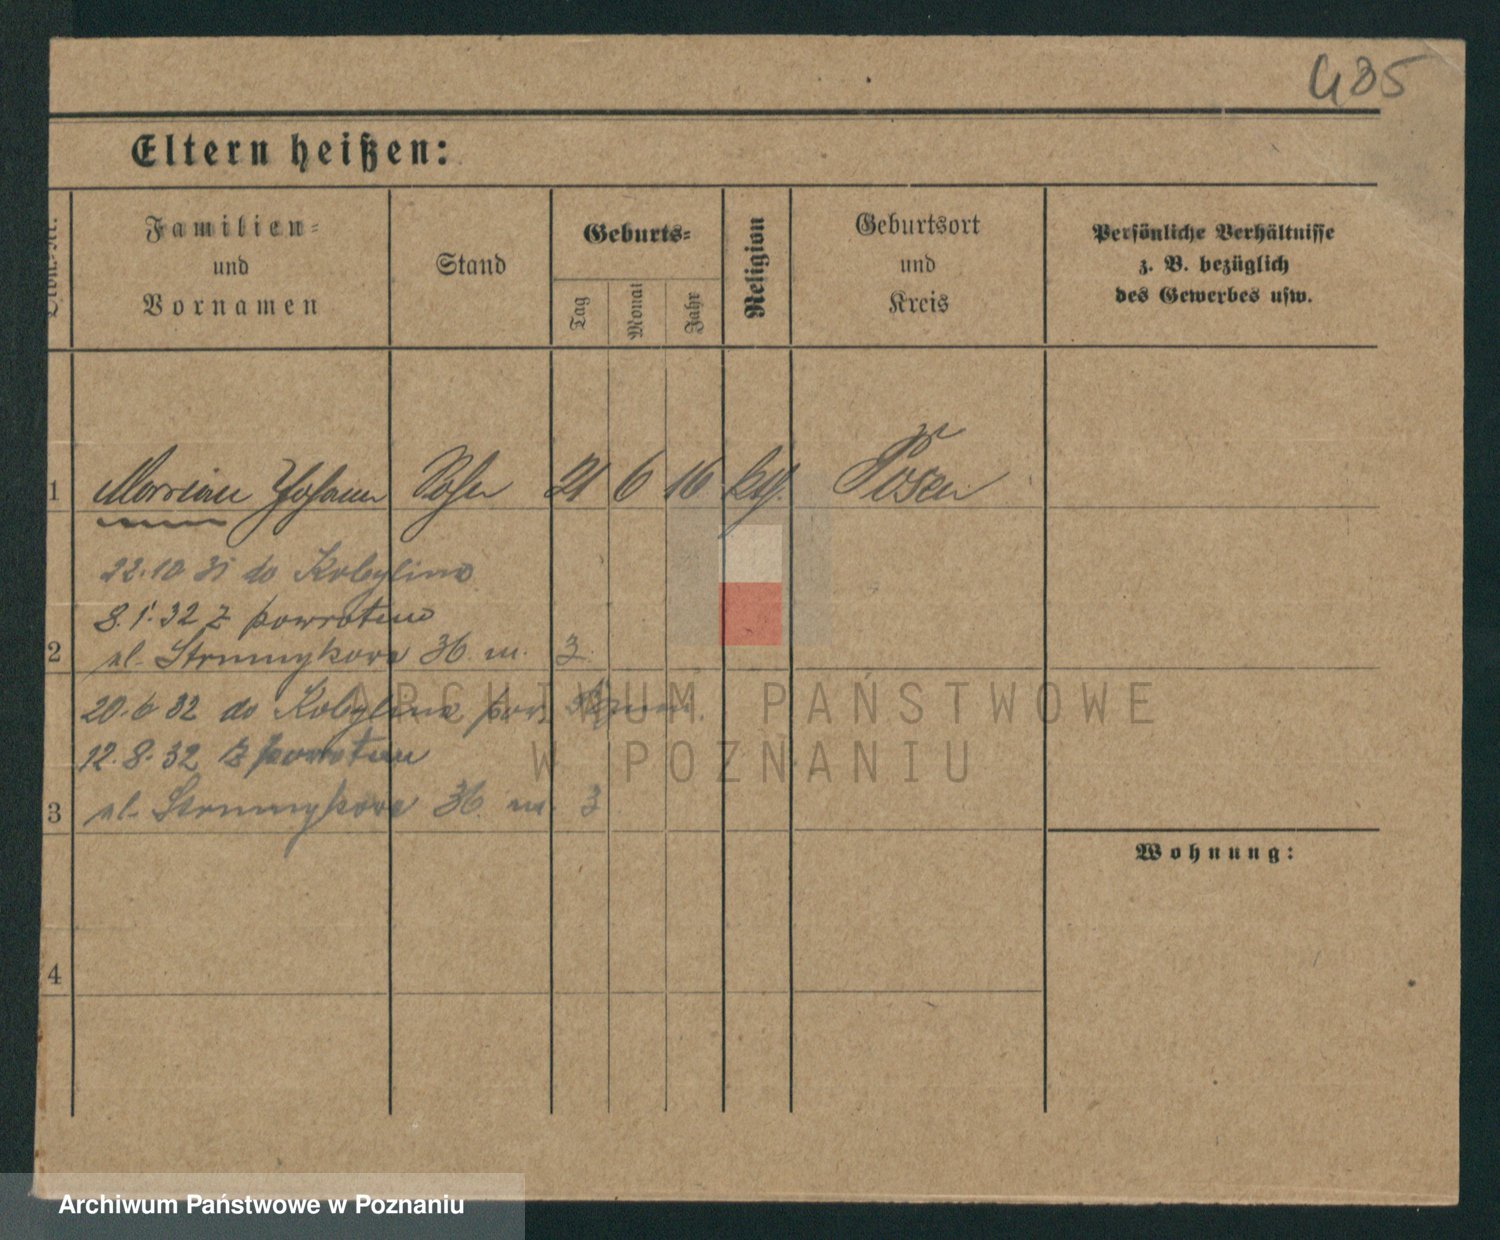 485
Eltern heißen:
Familien=
und
Vornamen
Stand
Geburts=
Tag
Monat
Jahr
Religion
Geburtsort
und
Kreis
Persönliche Verhältnisse
z. B. bezüglich
des Gewerbes usw.
1 Marrian Johann Sohn 21 6 16 Posen
22.10 31 do Kobylina
8.1.32 z powrotem
2 ul. Strumykowa 36 m. 3.
20.6 32 do Kobylina pow.
12.8.32 z powrotem
3 ul. Strumykowa 36 m. 3
Wohnung:
4
ARCHIWUM PAŃSTWOWE
W POZNANIU
Archiwum Państwowe w Poznaniu